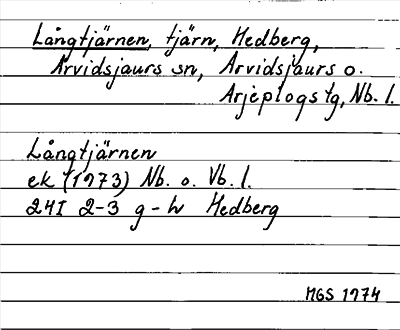 Långtjärnen, tjärn, Hedberg,
Arvidsjaurs sn, Arvidsjaurs o.
Arjeplogs tg, Nb. l.
Långtjärnen
ek (1973) Nb. o. Vb. l.
24I 2-3 g-h Hedberg
MGS 1974